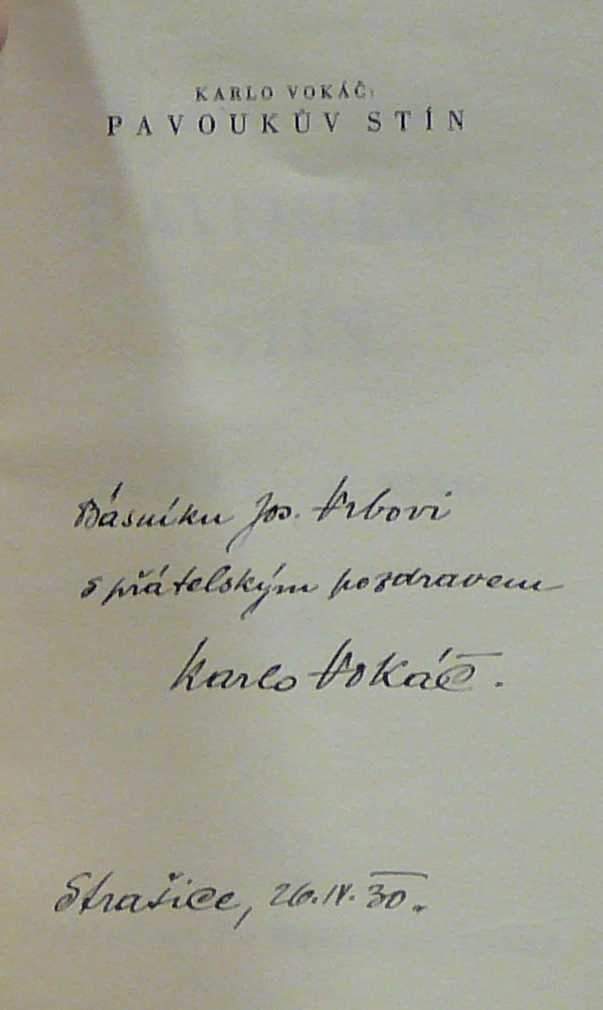 KARLO VOKÁČ:
PAVOUKŮV STÍN
Básníku Jos. Vrbovi
s přátelským pozdravem
Karlo Vokáč.
Strašice, 26.IV.30.